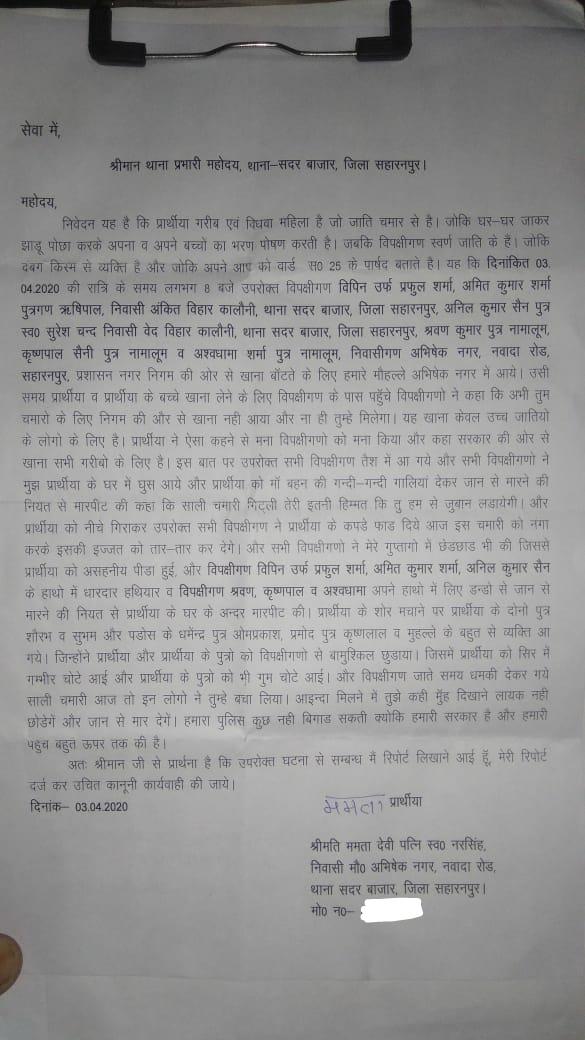 सेवा में,
श्रीमान थाना प्रभारी महोदय, थाना–सदर बाजार, जिला सहारनपुर।
महोदय,
निवेदन यह है कि प्रार्थीया गरीब एवं विधवा महिला है जो जाति चमार से है। जोकि घर–घर जाकर
झाडू पोछा करके अपना व अपने बच्चों का भरण पोषण करती है। जबकि विपक्षीगण स्वर्ण जाति के है। जोकि
दबंग किस्म से व्यक्ति है और जोकि अपने आप को वार्ड स0 25 के पार्षद बताते है। यह कि दिनांकित 03.
04.2020 की रात्रि के समय लगभग 8 बजे उपरोक्त विपक्षीगण विपिन उर्फ प्रफुल शर्मा, अमित कुमार शर्मा
पुत्रगण ऋषिपाल, निवासी अंकित विहार कालौनी, थाना सदर बाजार, जिला सहारनपुर, अनिल कुमार सैन पुत्र
स्व0 सुरेश चन्द निवासी वेद विहार कालौनी, थाना सदर बाजार, जिला सहारनपुर, श्रवण कुमार पुत्र नामालूम,
कृष्णपाल सैनी पुत्र नामालूम व अश्वधामा शर्मा पुत्र नामालूम, निवासीगण अभिषेक नगर, नवादा रोड,
सहारनपुर, प्रशासन नगर निगम की ओर से खाना बॉटते के लिए हमारे मौहल्ले अभिषेक नगर में आये। उसी
समय प्रार्थीया व प्रार्थीया के बच्चे खाना लेने के लिए विपक्षीगण के पास पहुँचे विपक्षीगणो ने कहा कि अभी तुम
चमारो के लिए निगम की और से खाना नही आया और ना ही तुम्हे मिलेगा। यह खाना केवल उच्च जातियो
के लोगो के लिए है। प्रार्थीया ने ऐसा कहने से मना विपक्षीगणो को मना किया और कहा सरकार की ओर से
खाना सभी गरीबो के लिए है। इस बात पर उपरोक्त सभी विपक्षीगण तैश में आ गये और सभी विपक्षीगणो ने
मुझ प्रार्थीया के घर में घुस आये और प्रार्थीया को मॉ बहन की गन्दी–गन्दी गालियां देकर जान से मारने की
नियत से मारपीट की कहा कि साली चमारी गिट्ली तेरी इतनी हिम्मत कि तु हम से जुबान लडायेगी। और
प्रार्थीया को नीचे गिराकर उपरोक्त सभी विपक्षीगण ने प्रार्थीया के कपडे फाड दिये आज इस चमारी को नगा
करके इसकी इज्जत को तार–तार कर देगे। और सभी विपक्षीगणो ने मेरे गुप्तागो में छेडछाड भी की जिससे
प्रार्थीया को असहनीय पीडा हुई, और विपक्षीगण विपिन उर्फ प्रफुल शर्मा, अमित कुमार शर्मा, अनिल कुमार सैन
के हाथो में धारदार हथियार व विपक्षीगण श्रवण, कृष्णपाल व अश्वधामा अपने हाथो में लिए डन्डो से जान से
मारने की नियत से प्रार्थीया के घर के अन्दर मारपीट की। प्रार्थीया के शोर मचाने पर प्रार्थीया के दोनो पुत्र
शौरभ व सुभम और पडोस के धमेंन्द्र पुत्र ओमप्रकाश, प्रमोद पुत्र कृष्णलाल व मुहल्ले के बहुत से व्यक्ति आ
गये। जिन्होंने प्रार्थीया और प्रार्थीया के पुत्रो को विपक्षीगणो से बामुश्किल छुडाया। जिसमें प्रार्थीया को सिर में
गम्भीर चोटे आई और प्रार्थीया के पुत्रो को भी गुम चोटे आई। और विपक्षीगण जाते समय धमकी देकर गये
साली चमारी आज तो इन लोगो ने तुम्हे बचा लिया। आइन्दा मिलने में तुझे कही मुँह दिखाने लायक नही
छोडेगें और जान से मार देगें। हमारा पुलिस कुछ नही बिगाड सकती क्योकि हमारी सरकार है और हमारी
पहुच बहुत ऊपर तक की है।
अतः श्रीमान जी से प्रार्थना है कि उपरोक्त घटना से सम्बन्ध मै रिपोर्ट लिखाने आई हूॅ, मेरी रिपोर्ट
दर्ज कर उचित कानूनी कार्यवाही की जाये।
दिनांक– 03.04.2020
ममता प्रार्थीया
श्रीमति ममता देवी पत्नि स्व0 नरसिंह,
निवासी मौ0 अभिषेक नगर, नवादा रोड,
थाना सदर बाजार, जिला सहारनपुर।
मो0 न0–